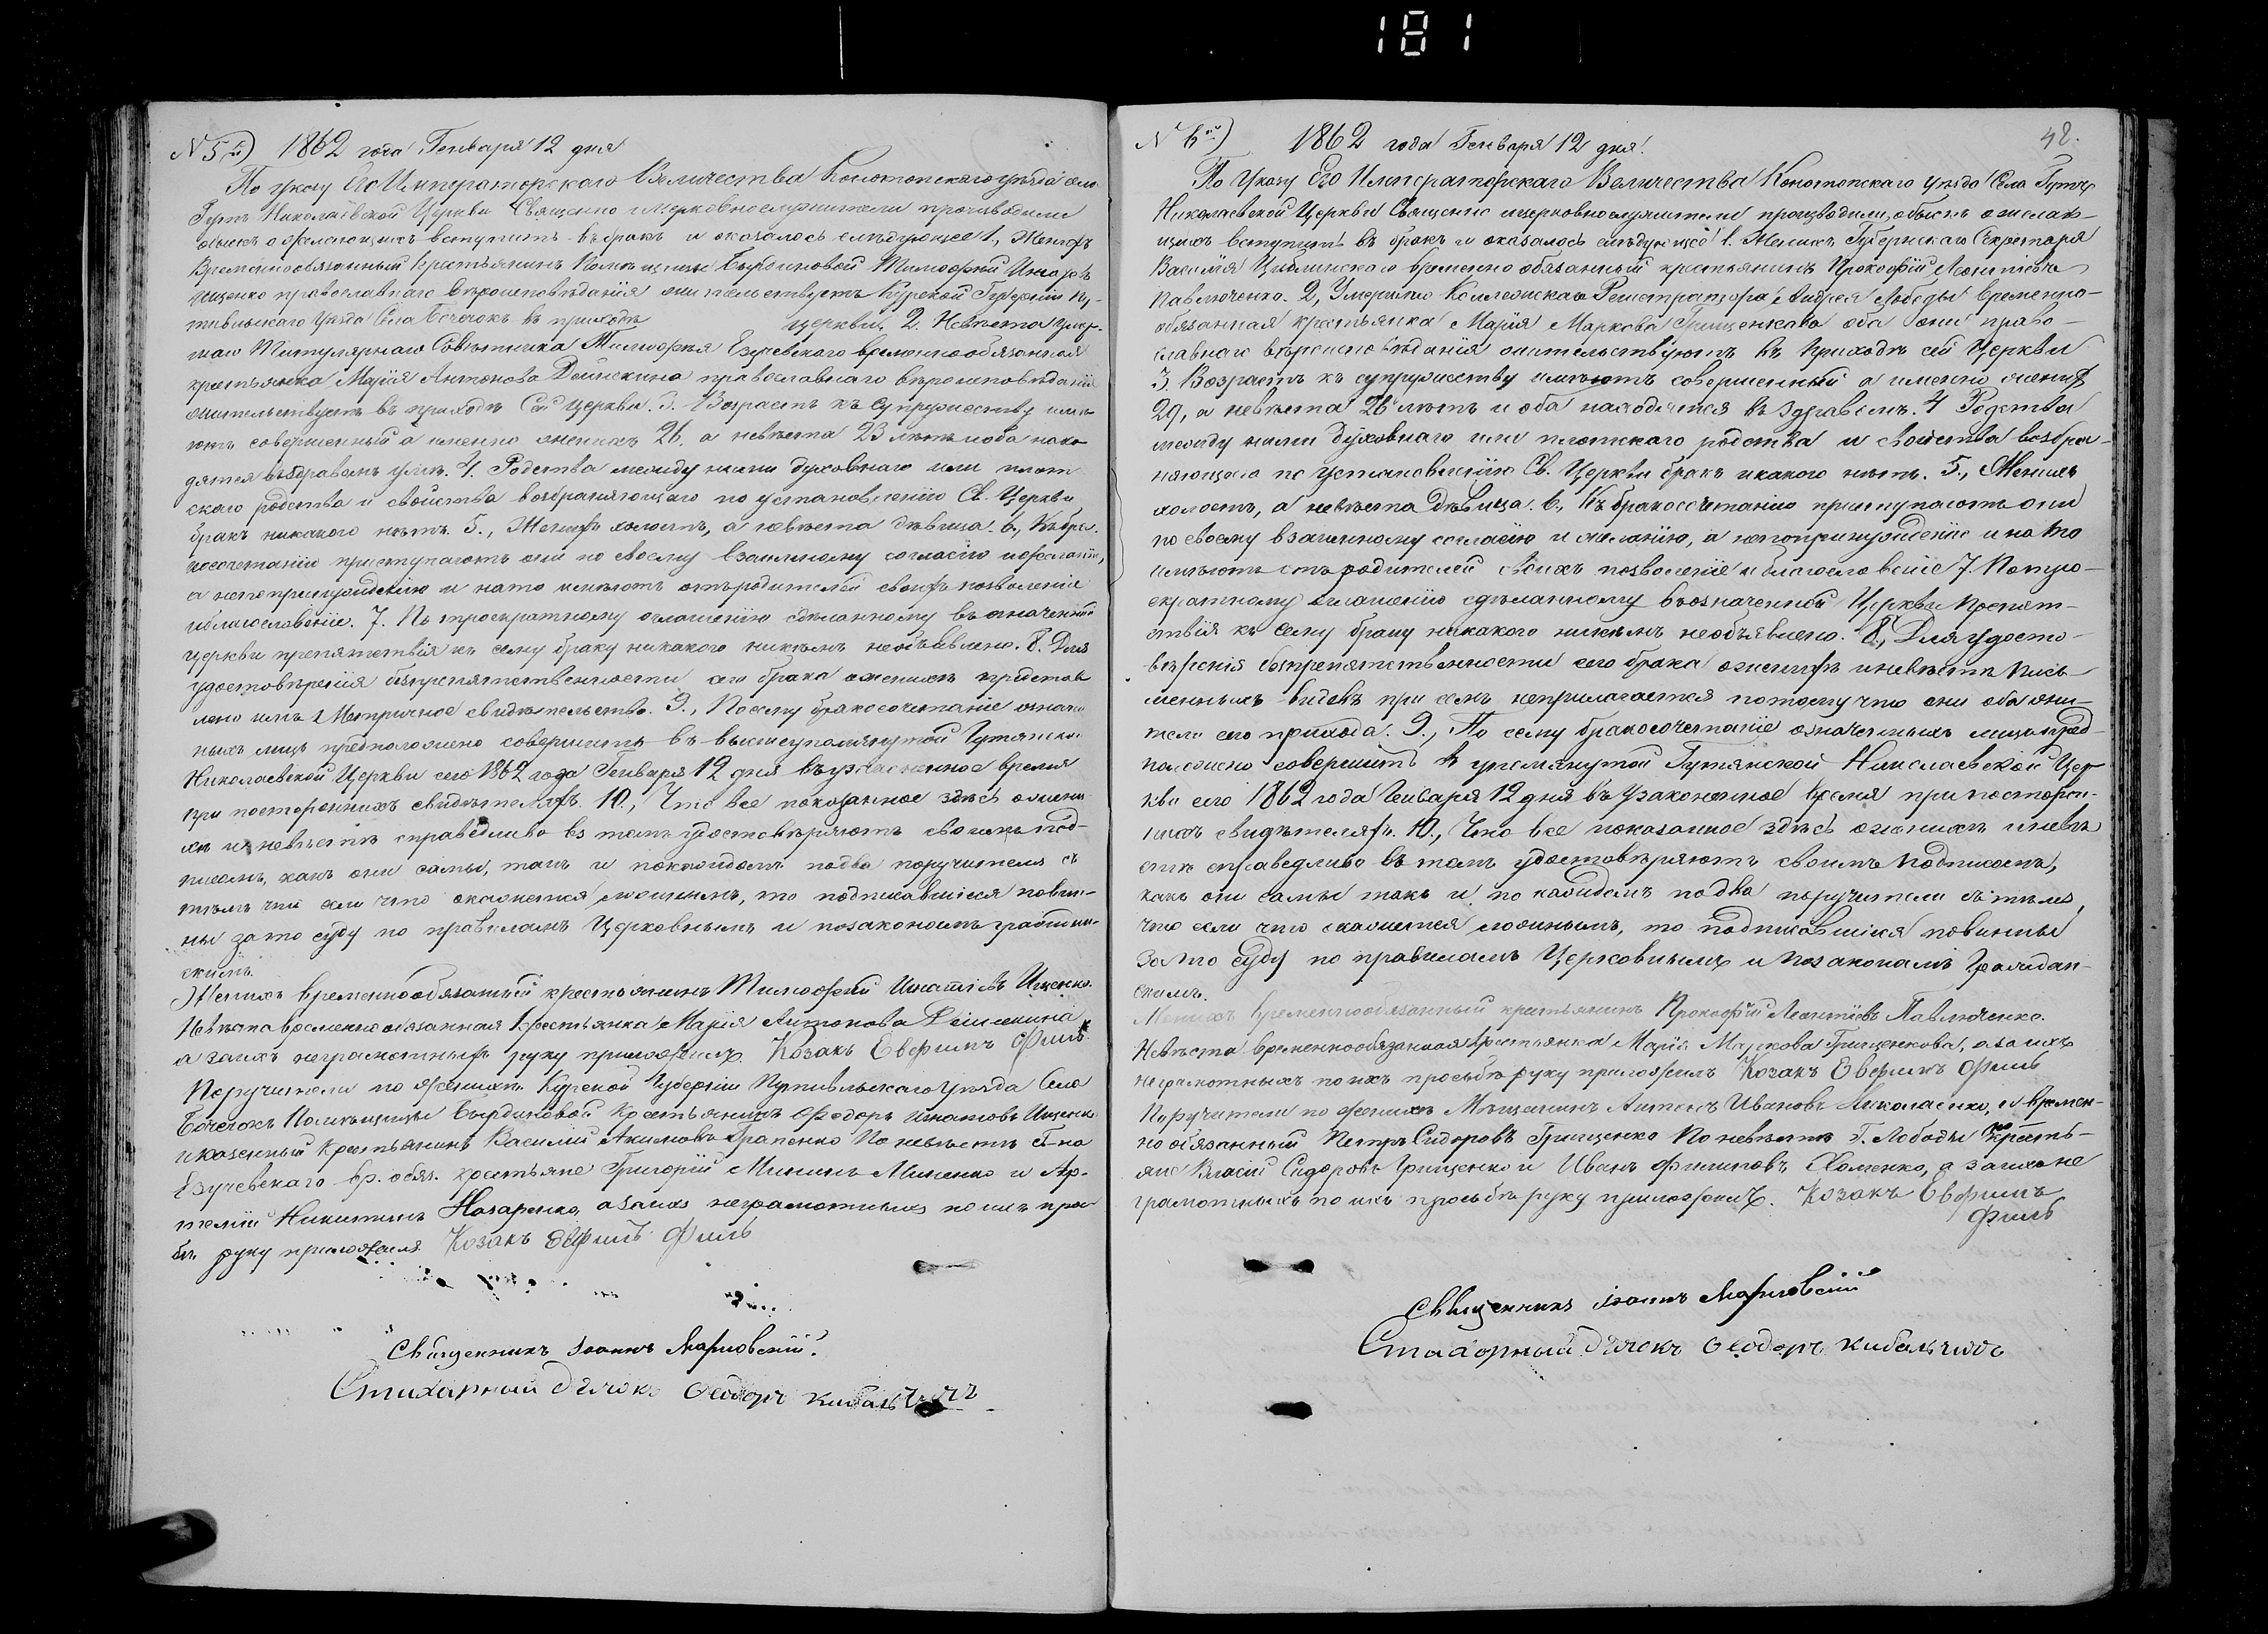 181
N 5й) 1862 года Генваря 12 дня
По указу Его Императорскаго Величества Конотопскаго уѣзда села
Гутъ Николаевской Церкви Священно и церковнослужители производили
обыскъ о желающихъ вступить въ бракъ и оказалось слѣдующее 1, Женихъ
Временнообязанный крестьянинъ Помѣщицы Бырдиновой Тимофей Игнатовъ
Ищенко православнаго вѣроисповѣданія жительствуетъ Курской Губерніи Пу-
тивльскаго уѣзда Села Бочечокъ въ приходѣ церкви, 2. Невѣста умер-
шаго Титулярнаго Совѣтника Тимофея Езучевскаго временнообязанная
крестьянка Марія Антонова православнаго вѣроисповѣданія
жительствуетъ въ приходѣ Сей церкви. 3. Возрастъ къ супружеству имѣ
ютъ совершенный а именно женихъ 26. а невѣста 23 лѣтъ и оба нахо
дятся въ здравомъ умѣ. 4. Родства между ними духовнаго или плот
скаго родства и свойства возбраняющаго по установленію Св. Церкви
бракъ никакого нѣтъ. 5., Женихъ холостъ, а невѣста дѣвица. 6, Къ бра-
косочетанію приступаютъ они по своему взаимному согласію и желанію,
а непопринужденію и на то имѣютъ отъ родителей своихъ позволеніе
и благословеніе. 7. По троекратному оглашенію сдѣланному въ означенной
церкви препятствія къ сему браку никакого никѣмъ необъявлено. 8. Для
удостовѣренія безпрепятственности сего брака женихомъ представ
лено имъ Метричное свидѣтельство. 9., Посему бракосочетаніе означен
ныхъ лицъ предположено совершить въ вышеупомянутой Гутянской
Николаевской Церкви сего 1862 года Генваря 12 дня въ узаконенное время
при постороннихъ свидѣтеляхъ. 10., Что все показанное здѣсь о жени
хѣ и невѣстѣ справедливо въ томъ удостовѣряютъ своимъ под-
писомъ, какъ они самы, такъ и покаждомъ подва поручителя съ
тѣмъ что если что окажется ложнымъ, то подписавшіеся повин-
ны зато суду по правиламъ Церковнымъ и позаконамъ граждан-
скимъ.
Женихъ временнообязанный крестьянинъ Тимофей Игнатіевъ Ищенко.
Невѣста временнообязанная крестьянка Марія Антонова
а заихъ неграмотныхъ руку приложилъ Козакъ Евфимъ Филь
Поручители по женихѣ Курской Губерніи Путивльскаго Уѣзда Села
Бочечокъ Помѣщицы Бырдиновой крестьянинъ Федоръ Игнатовъ Ищенко
и казенный крестьянинъ Василій Акимовъ Понѣвестѣ Г-на
Езучевскаго вр. обяз. крестьяне Григорій Мининъ Миненко и Ар-
темій Никитинъ Назаренко, а заихъ неграмотныхъ по ихъ прось
бѣ руку приложилъ Козакъ Евфимъ Филь
Священникъ Іоаннъ
Стихарный дьячокъ Феодоръ Кибальчичъ
N 6й) 1862 года Генваря 12 дня. 42.
По Указу Его Императорскаго Величества Конотопскаго уѣзда Села Гутъ
Николаевской Церкви Священно ицерковнослужители производили, обыскъ о желаю-
щихъ вступить въ бракъ и оказалось слѣдующее 1. Женихъ Губернскаго Секретаря
Василія временно обязанный крестьянинъ Прокофій Леонтіевъ
Павлюченко. 2, Умершаго Коллежскаго Регистратора Андрея Лободы временно-
обязанная крестьянка Марія Маркова Грищенкова оба они право-
славнаго вѣроисповѣданія жительствуютъ въ приходѣ сей Церкви
3. Возрастъ къ супружеству имѣютъ совершенный а именно женихъ
29, а невѣста 26 лѣтъ и оба находятся въ здравомъ. 4 Родства
между ними духовнаго или плотскаго родства и свойства возбра-
няющаго по установленію Св. Церкви бракъ никакого нѣтъ. 5., Женихъ
холостъ, а невѣста дѣвица. 6., Къ бракосочетанію приступаютъ они
по своему взаимному согласію и желанію, а непопринужденію и на то
имѣютъ отъ родителей своихъ позволеніе и благословеніе 7. Потро-
екратному оглашенію сдѣланному въозначенной Церкви препят-
ствія къ сему браку никакого никѣмъ необъявлено. 8., Для удосто-
вѣренія безпрепятственности сего брака ожених\ѣ иневѣстѣ пись-
менныхъ видовъ при семъ неприлагается потому что они оба жи-
тели сего прихода. 9., По сему бракосочетаніе означенныхъ лицъ пред-
положено совершить въ упомянутой Гутянской Николаевской Цер
кви сего 1862 года Генваря 12 дня въ узаконенное время при посторон-
нихъ свидѣтеляхъ. 10., Что все показанное здѣсь оженихѣ иневѣ
стѣ справедливо въ томъ удостовѣряютъ своимъ подписомъ,
какъ они самы такъ и по каждомъ подва поручители съ тѣмъ,
что если что окажется ложнымъ, то подписавшіеся повинны
зато суду по правиламъ Церковнымъ и позаконамъ Граждан-
скимъ.
Женихъ временнообязанный крестьянинъ Прокофій Леонтіевъ Павлюченко.
Невѣста временнообязанная крестьянка Марія Маркова Грищенкова, а заихъ
неграмотныхъ по ихъ просьбѣ руку приложилъ Козакъ Евфимъ Филь
Поручители по женихѣ Мѣщанинъ Антонъ Ивановъ Николаенко, и времен-
но обязанный Петръ Сидоровъ Грищенко По невѣстѣ Г. Лободы кресть-
яне Власій Сидоровъ Грищенко и Иванъ Филиповъ Хоменко, а заихъ не
грамотныхъ по ихъ просьбѣ руку приложилъ. Козакъ Евфимъ
Филь
Священникъ Іоаннъ
Стихарный дьячокъ Феодоръ Кибальчичъ